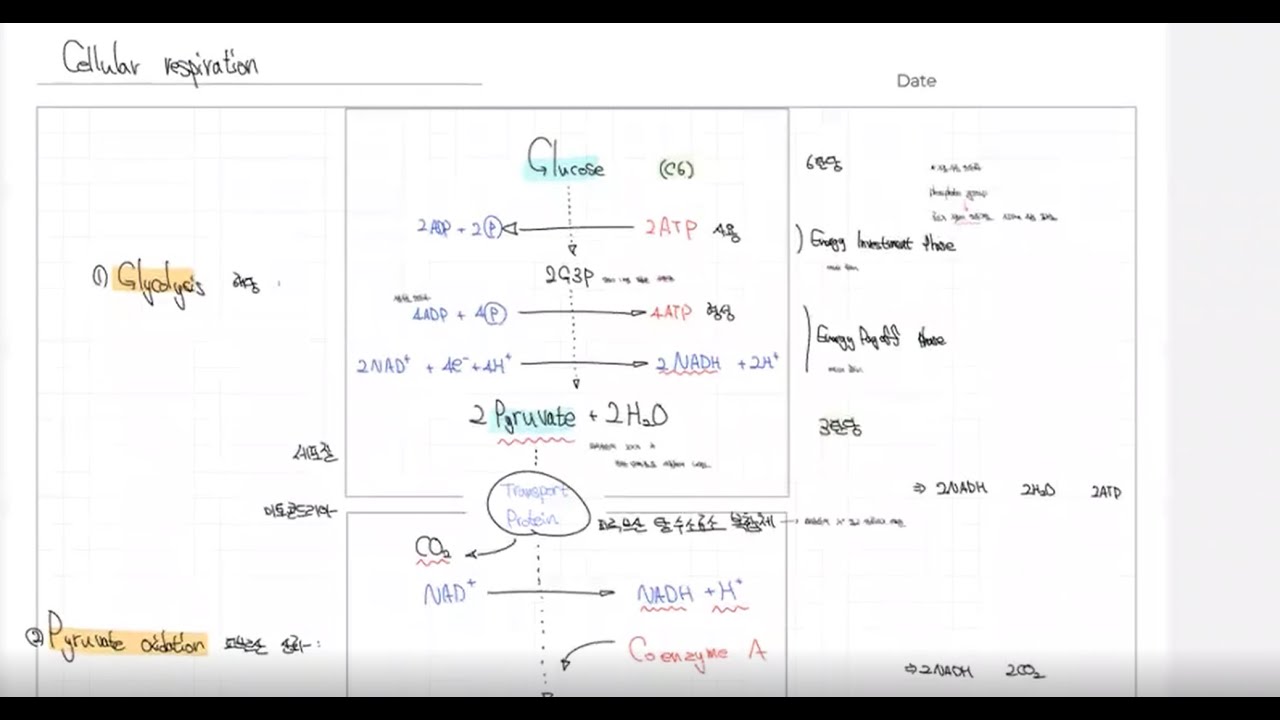 Cellular respiration
Date
Glucose (C6) 6탄당
phosphate group
2ADP + 2Ⓟ 2ATP 사용
Energy Investment Phase
① Glycolysis 해당 :
2G3P
4ADP + 4Ⓟ 4ATP 형성
Energy Pay off Phase
2NAD⁺ + 4e⁻ + 4H⁺ 2 NADH + 2H⁺
2 Pyruvate + 2H₂O
3탄당
세포질
⇒ 2NADH 2H₂O 2ATP
Transport
Protein
미토콘드리아
피루브산 탈수소효소 복합체 →
CO₂
NAD⁺ NADH + H⁺
② Pyruvate oxidation 피루브산 산화 :
Coenzyme A
⇒ 2NADH 2CO₂